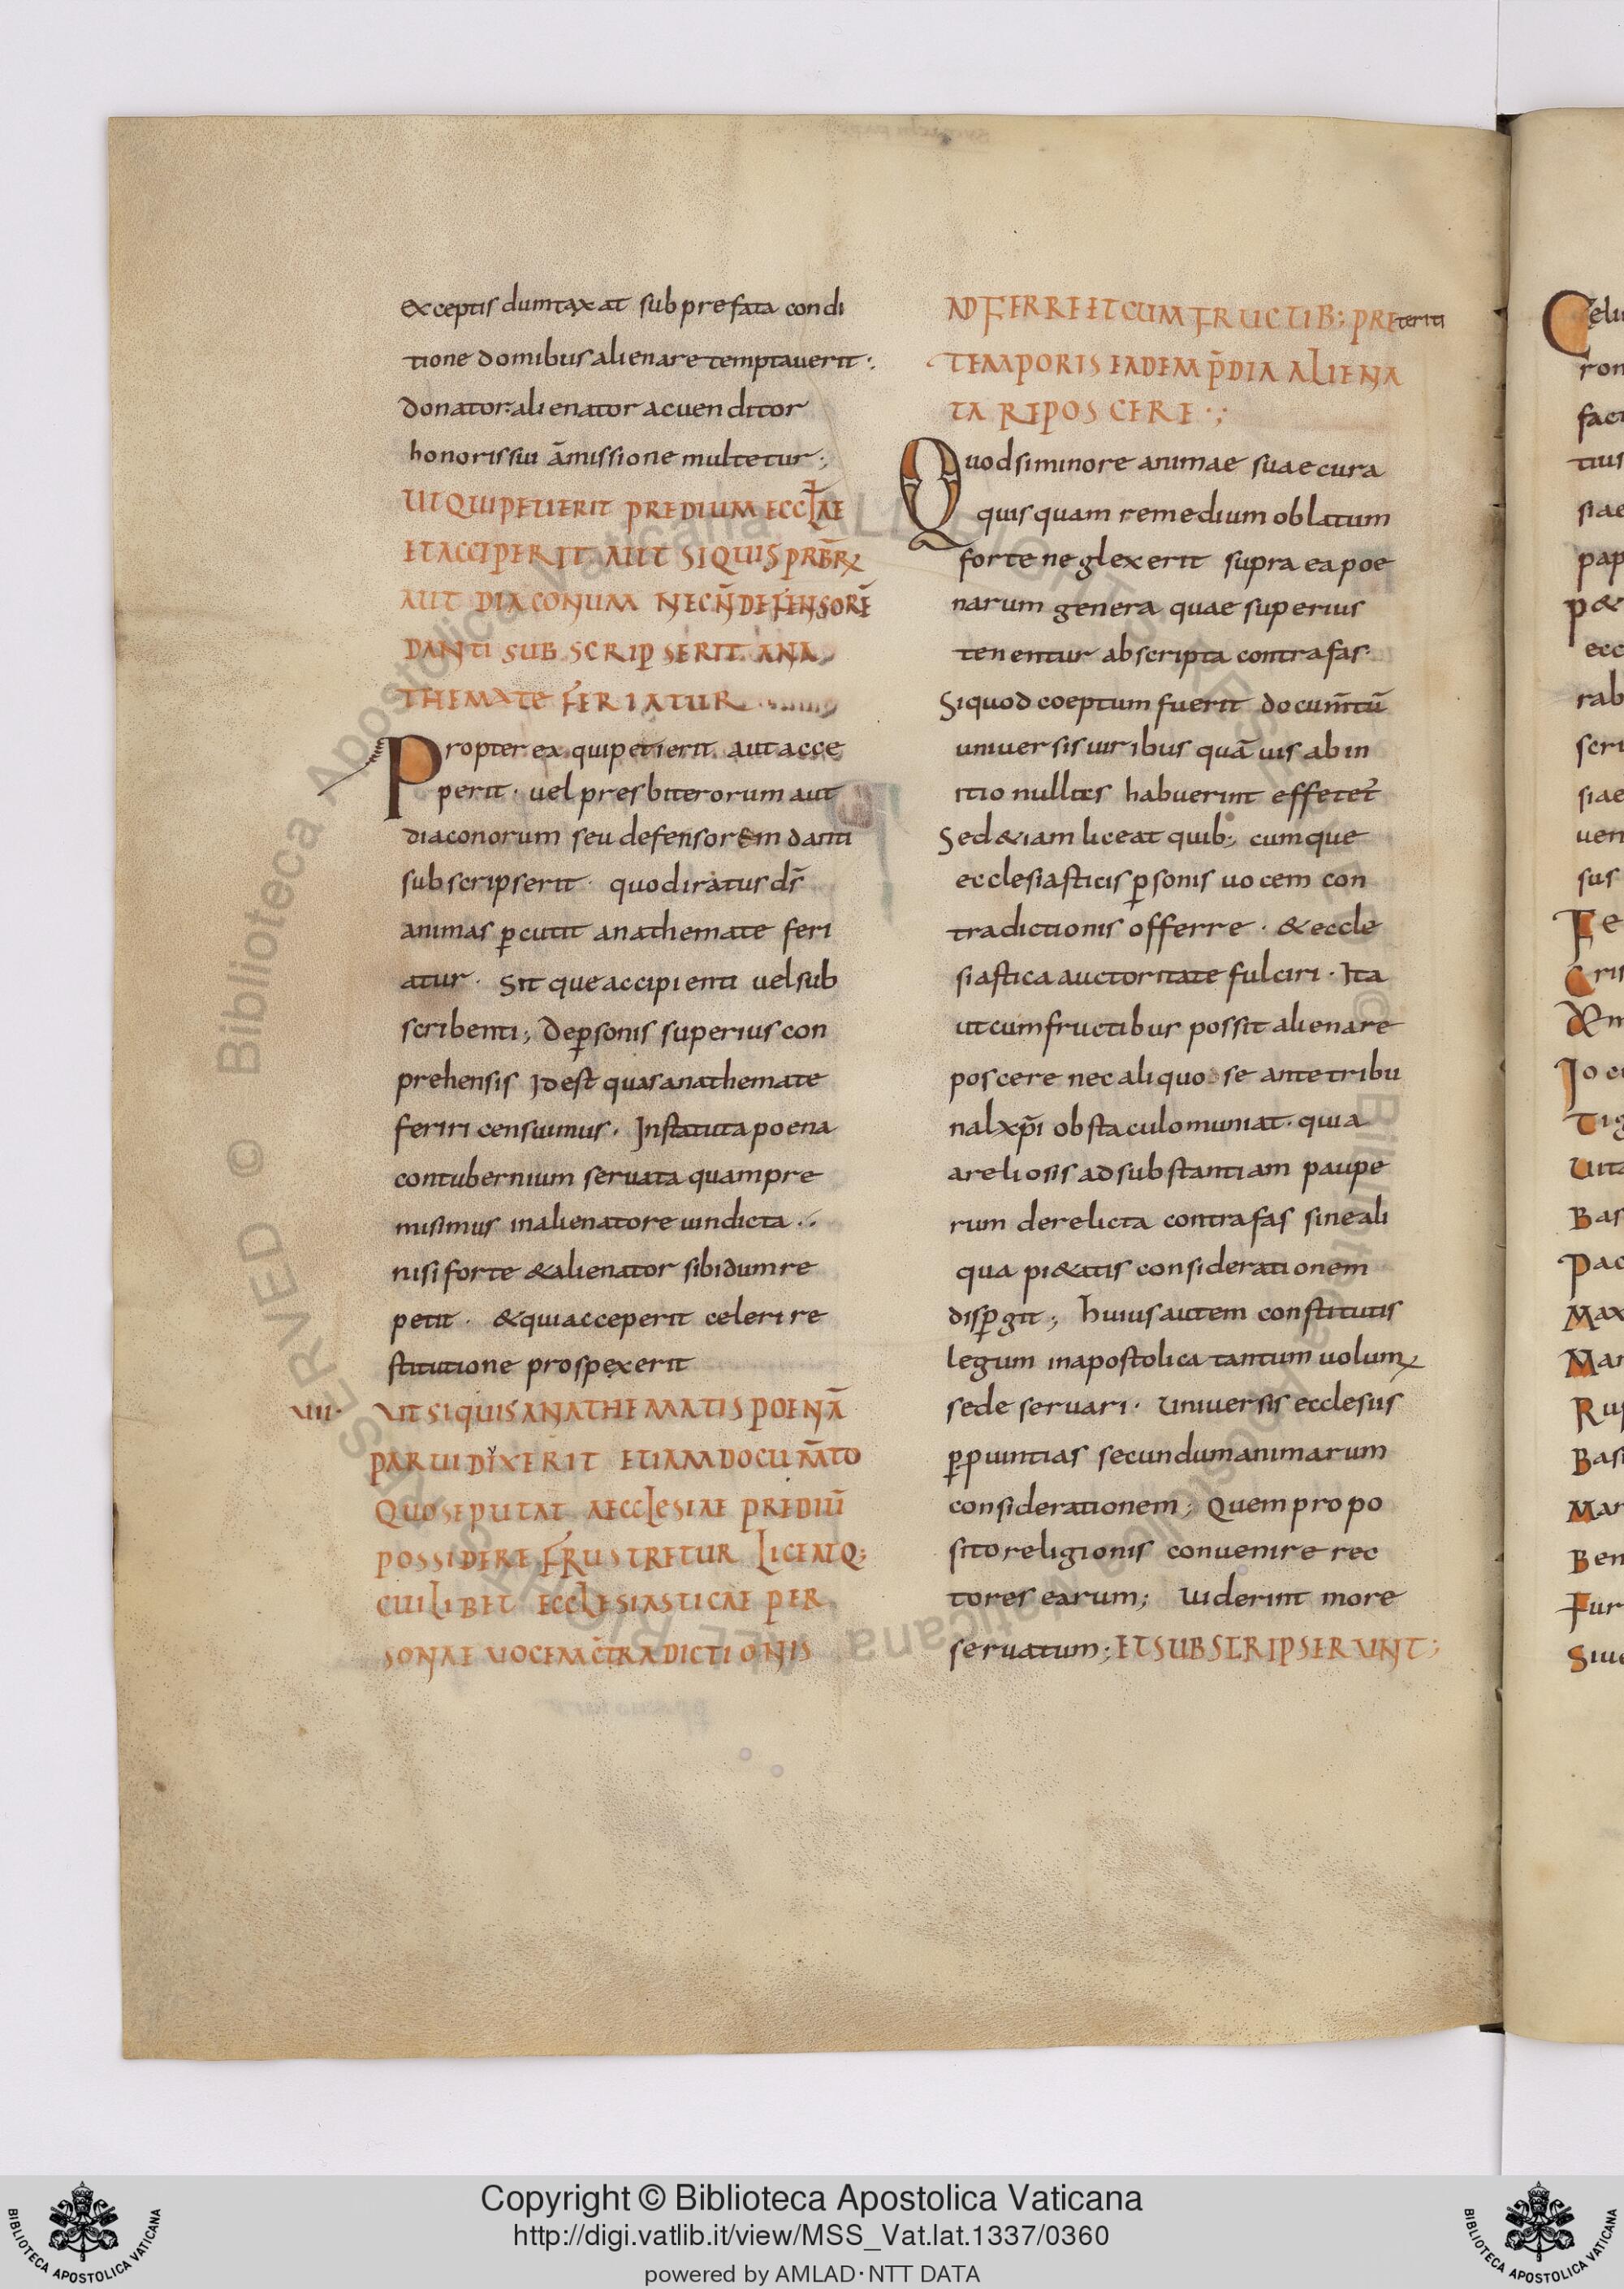 exceptis dumtaxat sub prefata condi
tione domibus alienare temptauerit·
donator. alienator ac uenditor
honoris sui āmissione multetur;
UT QUI PETIERIT PREDIUM ECCLAE
ET ACCIPERIT AUT SI QUIS PRBR
AUT DIACONUM NECN̄ DEFENSORĒ
DANTI SUBSCRIPSERIT ANA
THEMATE FERIATUR
Propterea qui petierit aut acce
perit· uel presbiterorum aut
diaconorum seu defensorem danti
subscripserit· quod iratus d̄s
animas p̄cutit anathemate feri
atur· Sitque accipienti uel sub
scribenti; De p̄sonis superius con
prehensis Idest quas anathemate
feriri censuimus· Instatuta poena
contubernium seruata quam pre
misimus in alienatore uindicta··
nisi forte & alienator sibi dum re
petit· & qui acceperit celeri re
stitutione prospexerit
VIII· UT SI QUIS ANATHEMATIS POENĀ
PARUI DIXERIT ETIAM DOCUM̄TO
QUO SE PUTAT A ECCLESIAE PREDIŪ
POSSIDERE FRUSTRETUR LICEATQ;
CUILIBET ECCLESIASTICAE PER
SONAE UOCEM C̄TRADICTIONIS
ADFERRE ET CUM FRUCTIB; PRETERITI
TEMPORIS EADEM P̄DIA ALIENA
TA REPOSCERE·;
Quod si minore animae suae cura
quisquam remedium oblatum
forte neglexerit supra ea poe
narum genera quae superius
tenentur abscripta contra fas
Siquod coeptum fuerit docum̄tū
uniuersis uiribus quāuis ab in
itio nullas habuerint effetet̄
Sed & iam liceat quib; cumque
ecclesiasticis p̄sonis uocem con
tradictionis offerre· & eccle
siastica auctoritate fulciri· Ita
ut cum fructibus possit alienare
poscere nec aliquo se ante tribu
nal xp̄i obstaculo muniat· quia
areliosis ad substantiam paupe
rum derelicta contra fas sine ali
qua pi&atis considerationem
disp̄git; huius autem constitutis
legum in apostolica tantum uolum
sede seruari· Uniuersis ecclesiis
p̄puintias secundum animarum
considerationem; Quem propo
sito religionis conuenire rec
tores earum; Uiderint more
seruatum; ET SUBSCRIPSERUNT;
Copyright © Biblioteca Apostolica Vaticana
http://digi.vatlib.it/view/MSS_Vat.lat.1337/0360
powered by AMLAD·NTT DATA